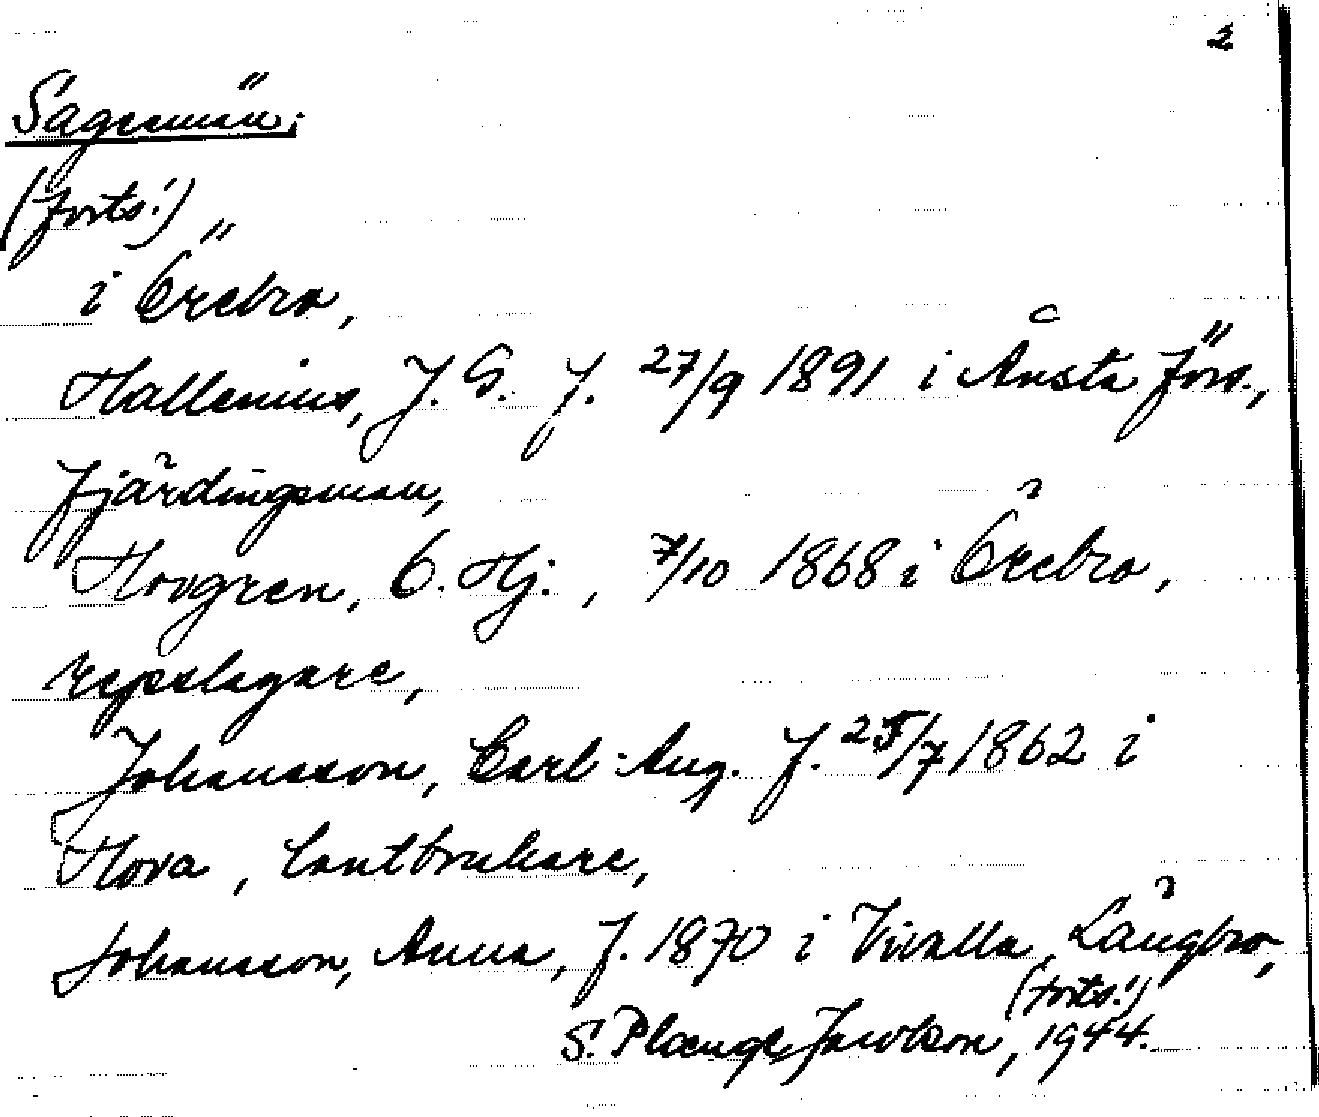 2
Sagesmän:
(forts!)
i Örebro,
Hallenius, J. G. f. 27/9 1891 i Ånsta förs.,
fjärdingsman,
Hovgren, C. Hj., 7/10 1868 i Örebro,
repslagare,
Johansson, Carl-Aug. f. 25/7 1862 i
Hova, lantbrukare,
Johansson, Anna, f. 1870 i Vivalla, Längbro,
(forts!)
S. Plænge Jacobson, 1944.